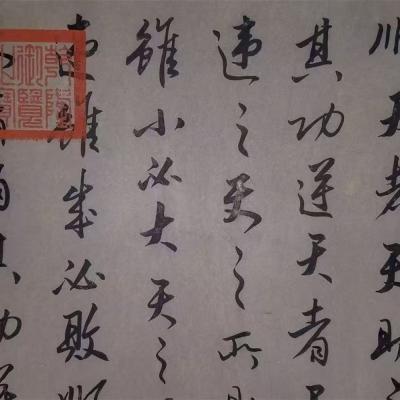 順天者天助
其功逆天者
違之天之所
雖小必大天之
違雖成必敗順
有其功逆
乾隆御覽之寶